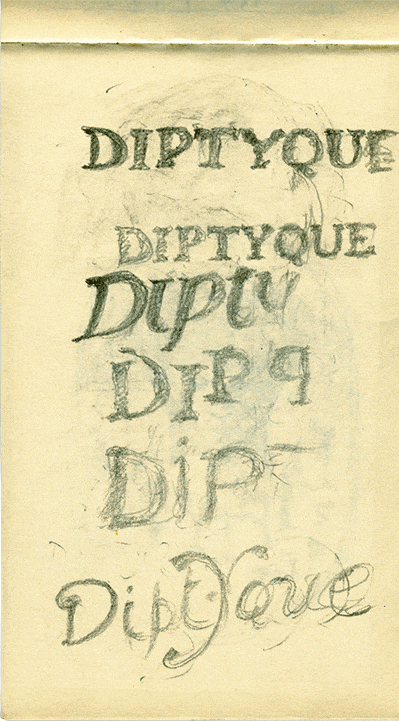 DIPTYQUE
DIPTYQUE
Dipty
DIPq
DiP
DiptYque